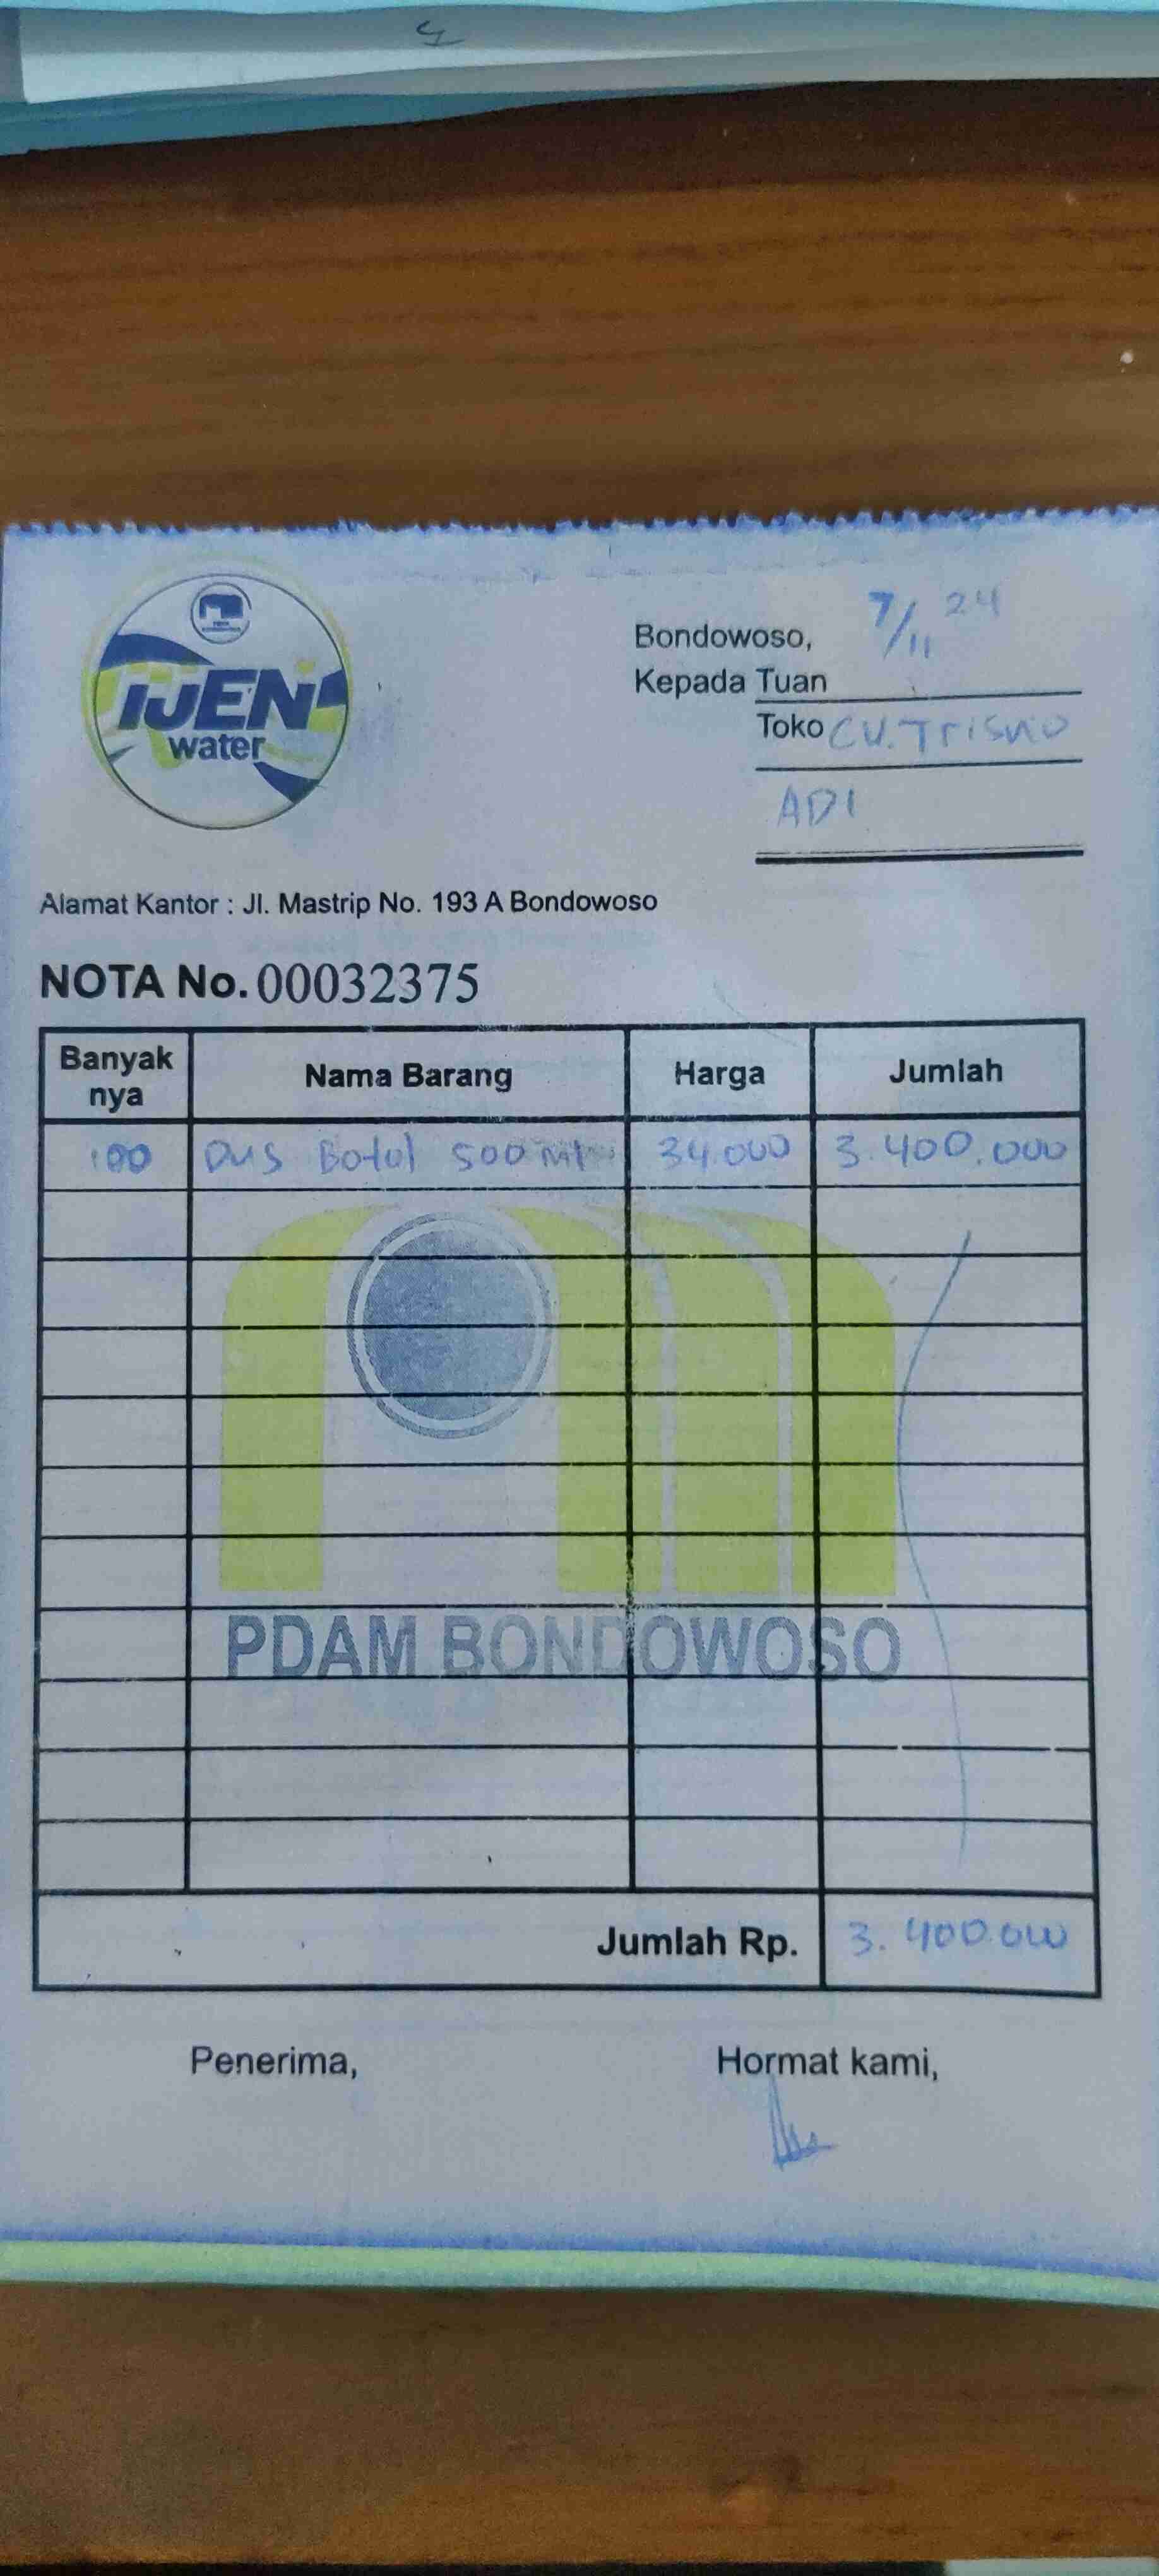 IJEN
water
Bondowoso, 7/11 24
Kepada Tuan
Toko CV. Trisno
ADI
Alamat Kantor : Jl. Mastrip No. 193 A Bondowoso
NOTA No. 00032375
Banyak nya Nama Barang Harga Jumlah
100 Dus Botol 500 ml 34.000 3.400.000
PDAM BONDOWOSO
Jumlah Rp. 3.400.000
Penerima, Hormat kami,